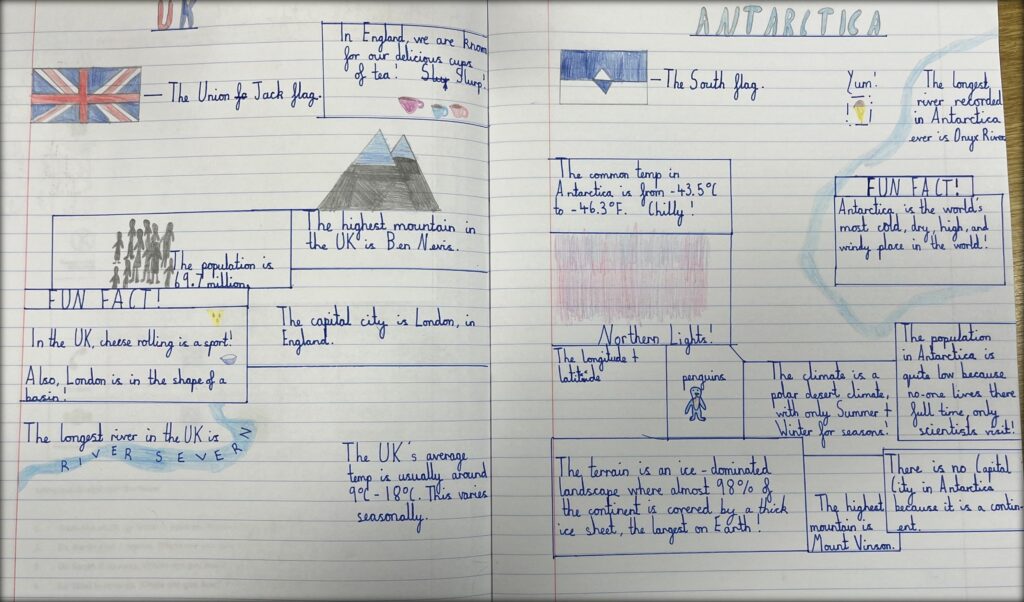 UK
In England, we are known
for our delicious cups
of tea! Slurp!
— The Union Jack flag.
The highest mountain in
the UK is Ben Nevis.
The population is
69.7 million.
FUN FACT!
In the UK, cheese rolling is a sport!
Also, London is in the shape of a
basin!
The capital city is London, in
England.
The longest river in the UK is
RIVER SEVERN
The UK's average
temp is usually around
9°C - 18°C. This varies
seasonally.
ANTARCTICA
— The South flag.
Yum!
The longest
river recorded
in Antarctica
ever is Onyx River.
The common temp in
Antarctica is from -43.5°C
to -46.3°F. Chilly!
FUN FACT!
Antarctica is the world's
most cold, dry, high, and
windy place in the world!
Northern Lights!
The longitude +
latitude
penguins
The climate is a
polar desert climate,
with only Summer +
Winter for seasons!
The population
in Antarctica is
quite low because
no-one lives there
full time, only
scientists visit!
The terrain is an ice-dominated
landscape where almost 98% of
the continent is covered by a thick
ice sheet, the largest on Earth!
The highest
mountain is
Mount Vinson.
There is no Capital
City in Antarctica
because it is a contin-
ent.